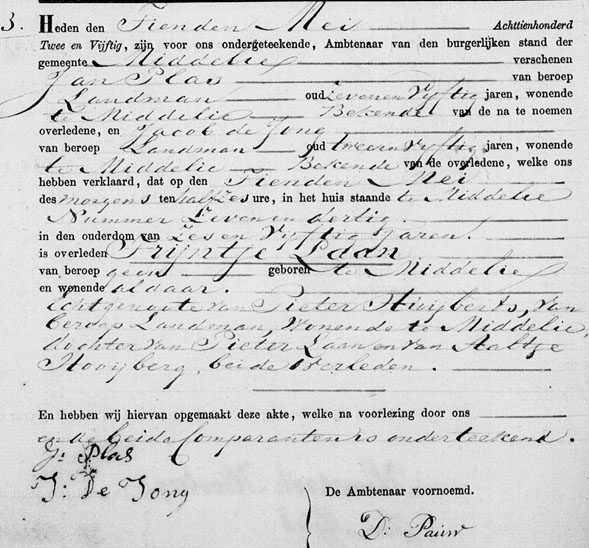 3. Heden den Tienden Mei Achttienhonderd
Twee en Vijftig, zijn voor ons ondergeteekende, Ambtenaar van den burgerlijken stand der
gemeente Middelie verschenen
Jan Plas van beroep
Landman oud Zevenen Vyftig jaren, wonende
te Middelie Bekende van de na te noemen
overledene, en Jacob de Jong
van beroep Landman oud tweeen Vyftig jaren, wonende
te Middelie Bekende van de overledene, welke ons
hebben verklaard, dat op den Tienden Mei
des morgens ten half zes ure, in het huis staande te Middelie
Nummer Zevenen dertig
in den ouderdom van Zes en Vyftig Jaren.
is overleden Trijntje Laan
van beroep geen geboren te Middelie
en wonende aldaar.
Echtgenoote van Pieter Huijberts, van
beroep Landman, Wonende te Middelie,
dochter van Pieter Laan en van Aaltje
Hooyberg, beide Overleden.
En hebben wij hiervan opgemaakt deze akte, welke na voorlezing door ons
en de beide Comparanten is onderteekend.
Jn Plas
J: De Jong
De Ambtenaar voornoemd.
D: Pauw